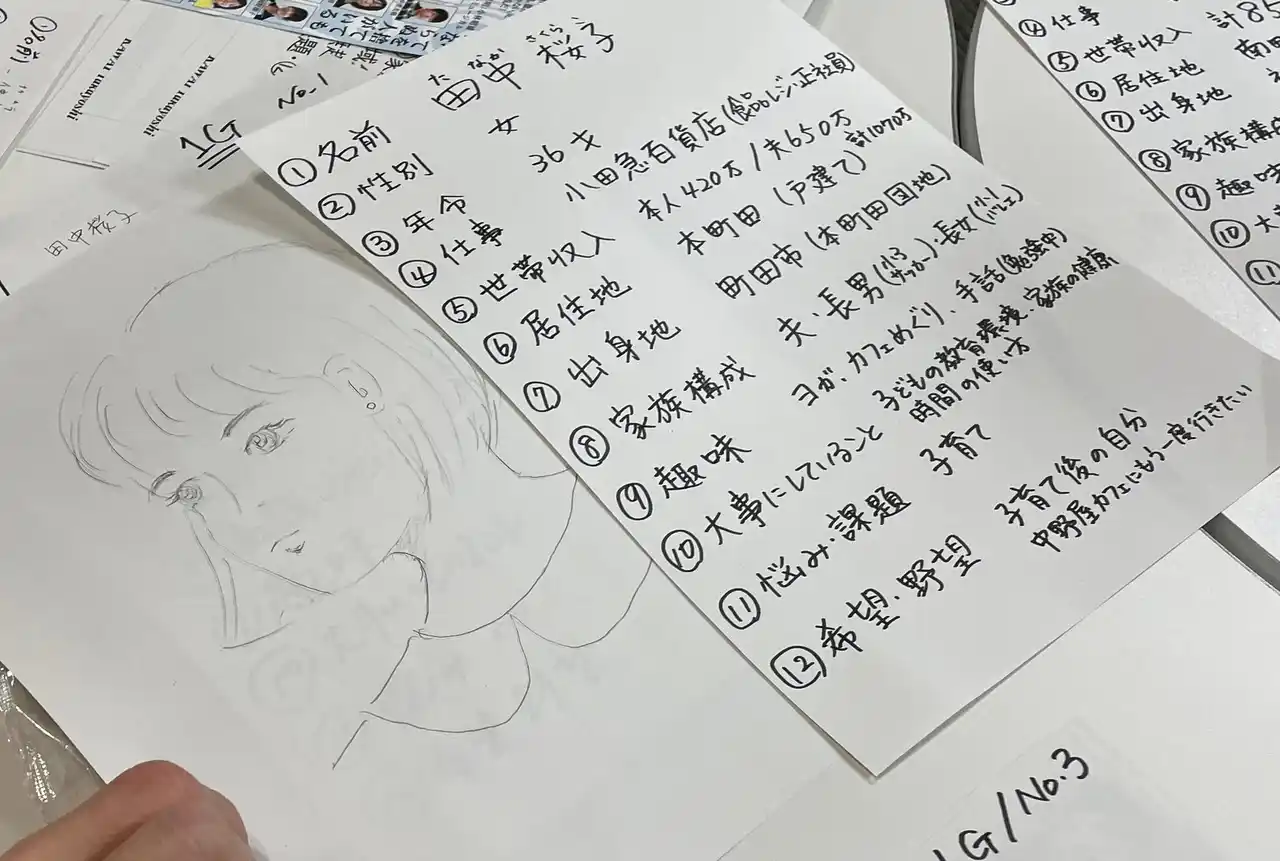 たなか さくら
① 名前 田中 桜子
② 性別 女
③ 年令 36才
④ 仕事 小田急百貨店(食品レジ・正社員)
⑤ 世帯収入 本人420万/夫650万 計1070万
⑥ 居住地 本町田(戸建て)
⑦ 出身地 町田市(本町田団地)
⑧ 家族構成 夫・長男(小3 サッカー)・長女(小1 バレエ)
⑨ 趣味 ヨガ、カフェめぐり、手話(勉強中)
⑩ 大事にしていること 子どもの教育環境・家族の健康
時間の使い方
⑪ 悩み・課題 子育て
⑫ 希望・野望 子育て後の自分
中野屋カフェにもう一度行きたい
1G
No-1
田中桜子
④ 仕事
⑤ 世帯収入 計85
⑥ 居住地
⑦ 出身地
⑧ 家族構成
⑨ 趣味
⑩ 大
⑪
G/No.3